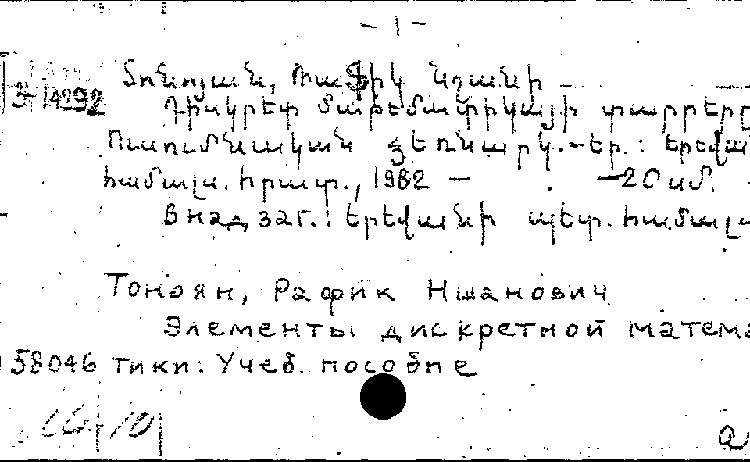 – 1 –
Տոնոյան, Ռաֆիկ Նշանի
3-14292 Դիսկրետ մաթեմատիկայի տարրերը
Ուսումնական ձեռնարկ.-Եր.: Երևա
համալս. հրատ., 1982 — –20 սմ.
В надзаг.: Երևանի պետ. համալս
Тоноян, Рафик Ншанович
Элементы дискретной матема
58046 тики: Учеб. пособие